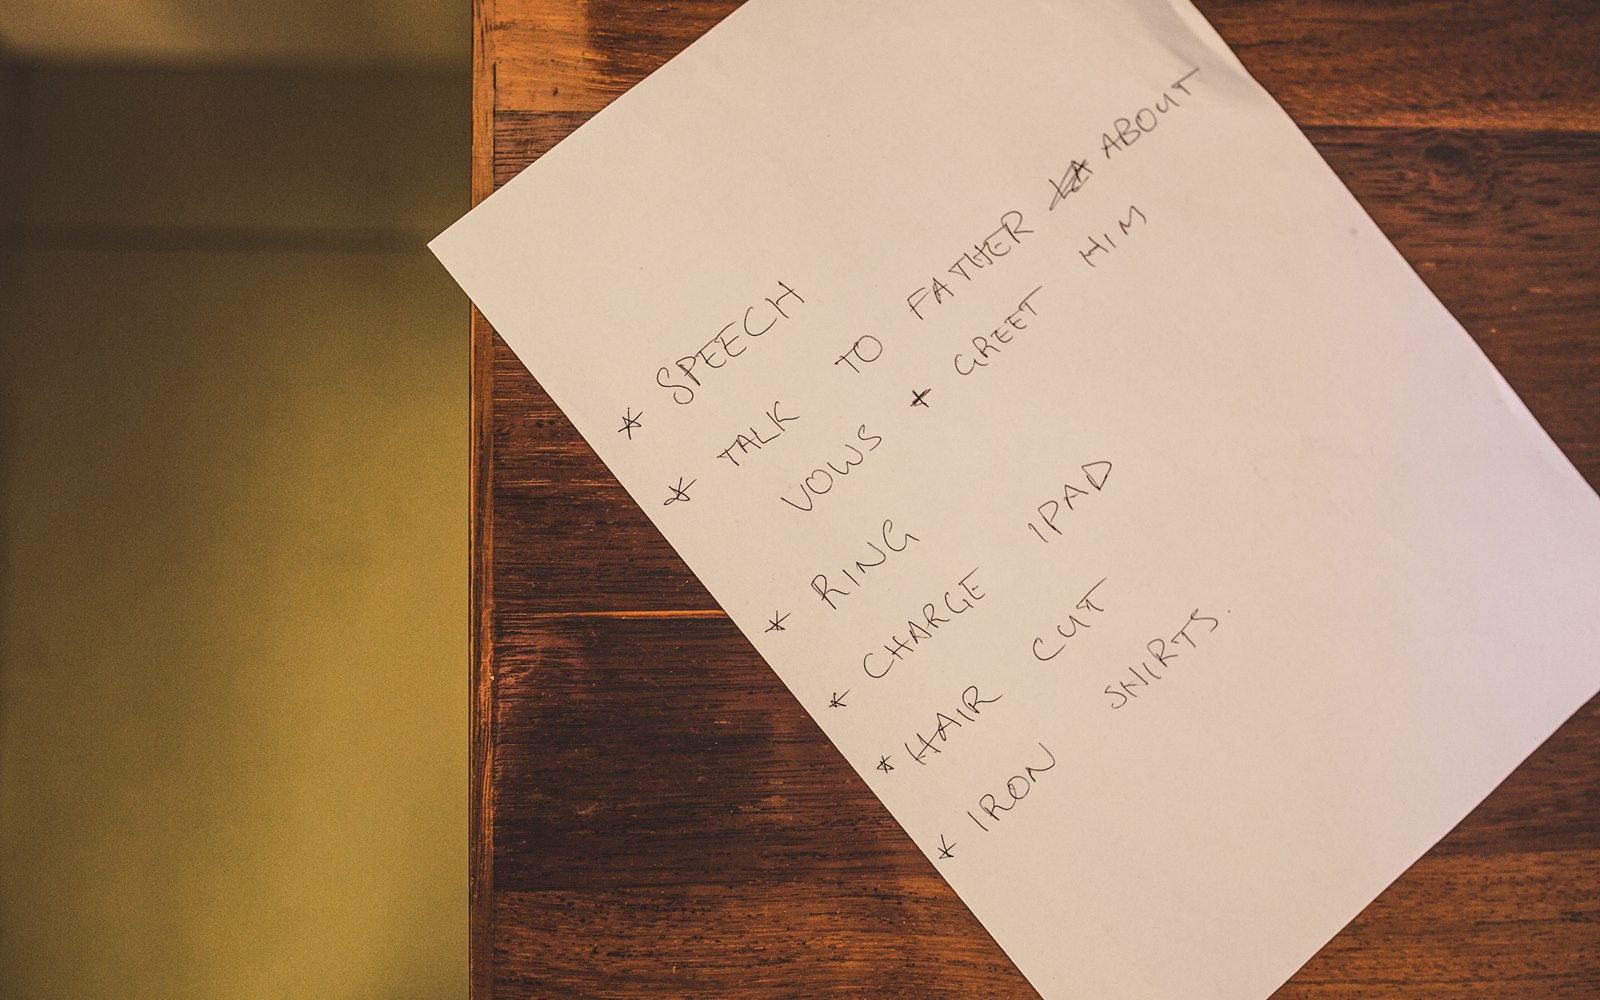 * SPEECH
* TALK TO FATHER ABOUT
VOWS + GREET HIM
* RING
* CHARGE IPAD
* HAIR CUT
* IRON SHIRTS.